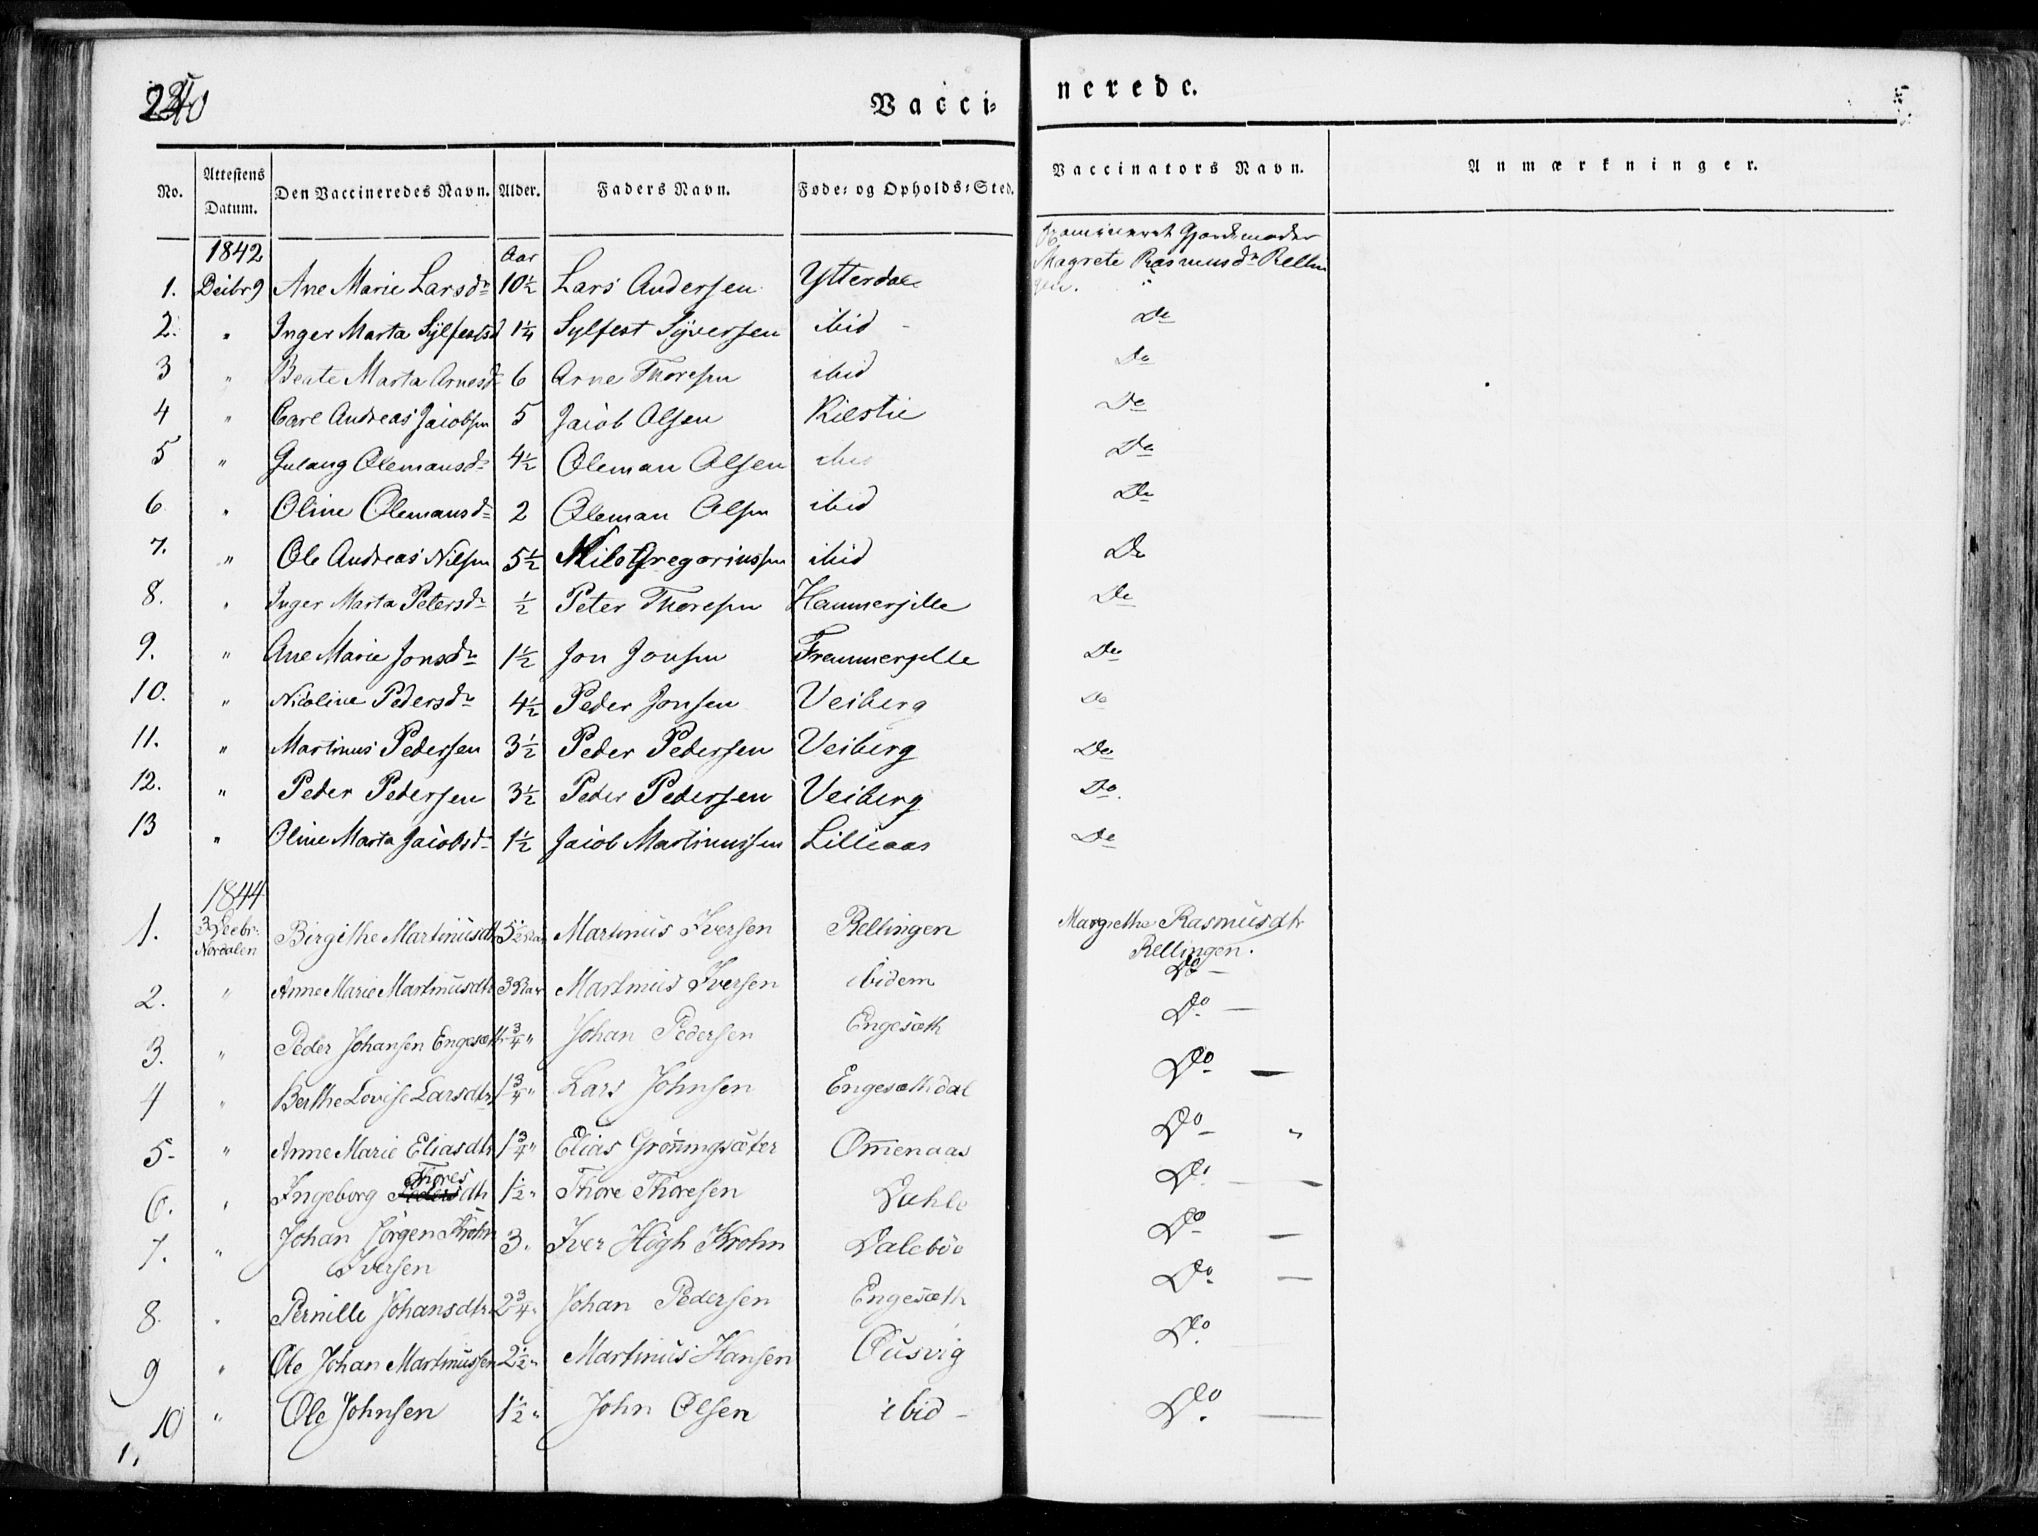 240
Vacci- nerede.
No. | Attestens Datum. | Den Vaccineredes Navn. | Alder. | Faders Navn. | Føde- og Opholds-Sted. | Vaccinators Navn. | Anmærkninger.
1842 | Aar | Examineret Gjordemoder
1. | Decbr 9 | Ane Marie Larsdr | 10½ | Lars Andersen | Ytterdal | Magrete Rasmusdr Rellingen.
2. | " | Inger Marta Sylfestsd | 1¼ | Sylfest Syversen | ibid | Do
3 | " | Beate Marta Arnesd | 6 | Arne Thoresen | ibid | Do
4 | " | Carl Andreas Jacobsen | 5 | Jacob Olsen | Kilstie | Do
5 | " | Gulaug Olemansdr | 4½ | Oleman Olsen | ibid | Do
6 | " | Oline Olemansdr | 2 | Oleman Olsen | ibid | Do
7. | " | Ole Andreas Nilsen | 5½ | Nils Gregoriussen | ibid | Do
8. | " | Inger Marta Petersdr | ½ | Peter Thoresen | Hammersjelle | Do
9. | " | Ane Marie Jonsdr | 1½ | Jon Jonsen | Fremmersjelle | Do
10. | " | Nicoline Pedersdr | 4½ | Peder Jonsen | Veiberg | Do
11. | " | Martinus Pedersen | 3½ | Peder Pedersen | Veiberg | Do
12. | " | Peder Pedersen | 3½ | Peder Pedersen | Veiberg | Do.
13 | " | Oline Marta Jacobsdr | 1½ | Jacob Martinussen | Lilleaas | Do
1844
1. | 3 Decbr. Nordalen | Birgithe Martinusdtr | 5½ Aar | Martinus Iversen | Rellingen | Margrethe Rasmusdtr Rellingen.
2. | " | Anne Marie Martinusdtr | 3 Aar | Martinus Iversen | ibidem | Do —
3. | " | Peder Johansen Engesæth | ¾ " | Johan Pedersen | Engesæth | Do —
4 | " | Berthe Lovise Larsdtr | 1¾ " | Lars Johnsen | Engesæthdal | Do —
5- | " | Anne Marie Eliasdtr | 1¾ " | Elias Grønningsæter | Omenaas | Do "
6. | " | Ingeborg Thoresdtr | 1½ " | Thore Thoresen | Dahle | Do —
7. | " | Johan Jørgen Krohn Iversen | 3. | Iver Høgh Krohn | Dalebøe | Do —
8. | " | Pernille Johansdtr | 2¾ " | Johan Pedersen | Engesæth | Do —
9 | " | Ole Johan Martinussen | 2½ " | Martinus Hansen | Ousvig | Do
10 | " | Ole Johnsen | 1½ " | John Olsen | ibid — | Do —
1.